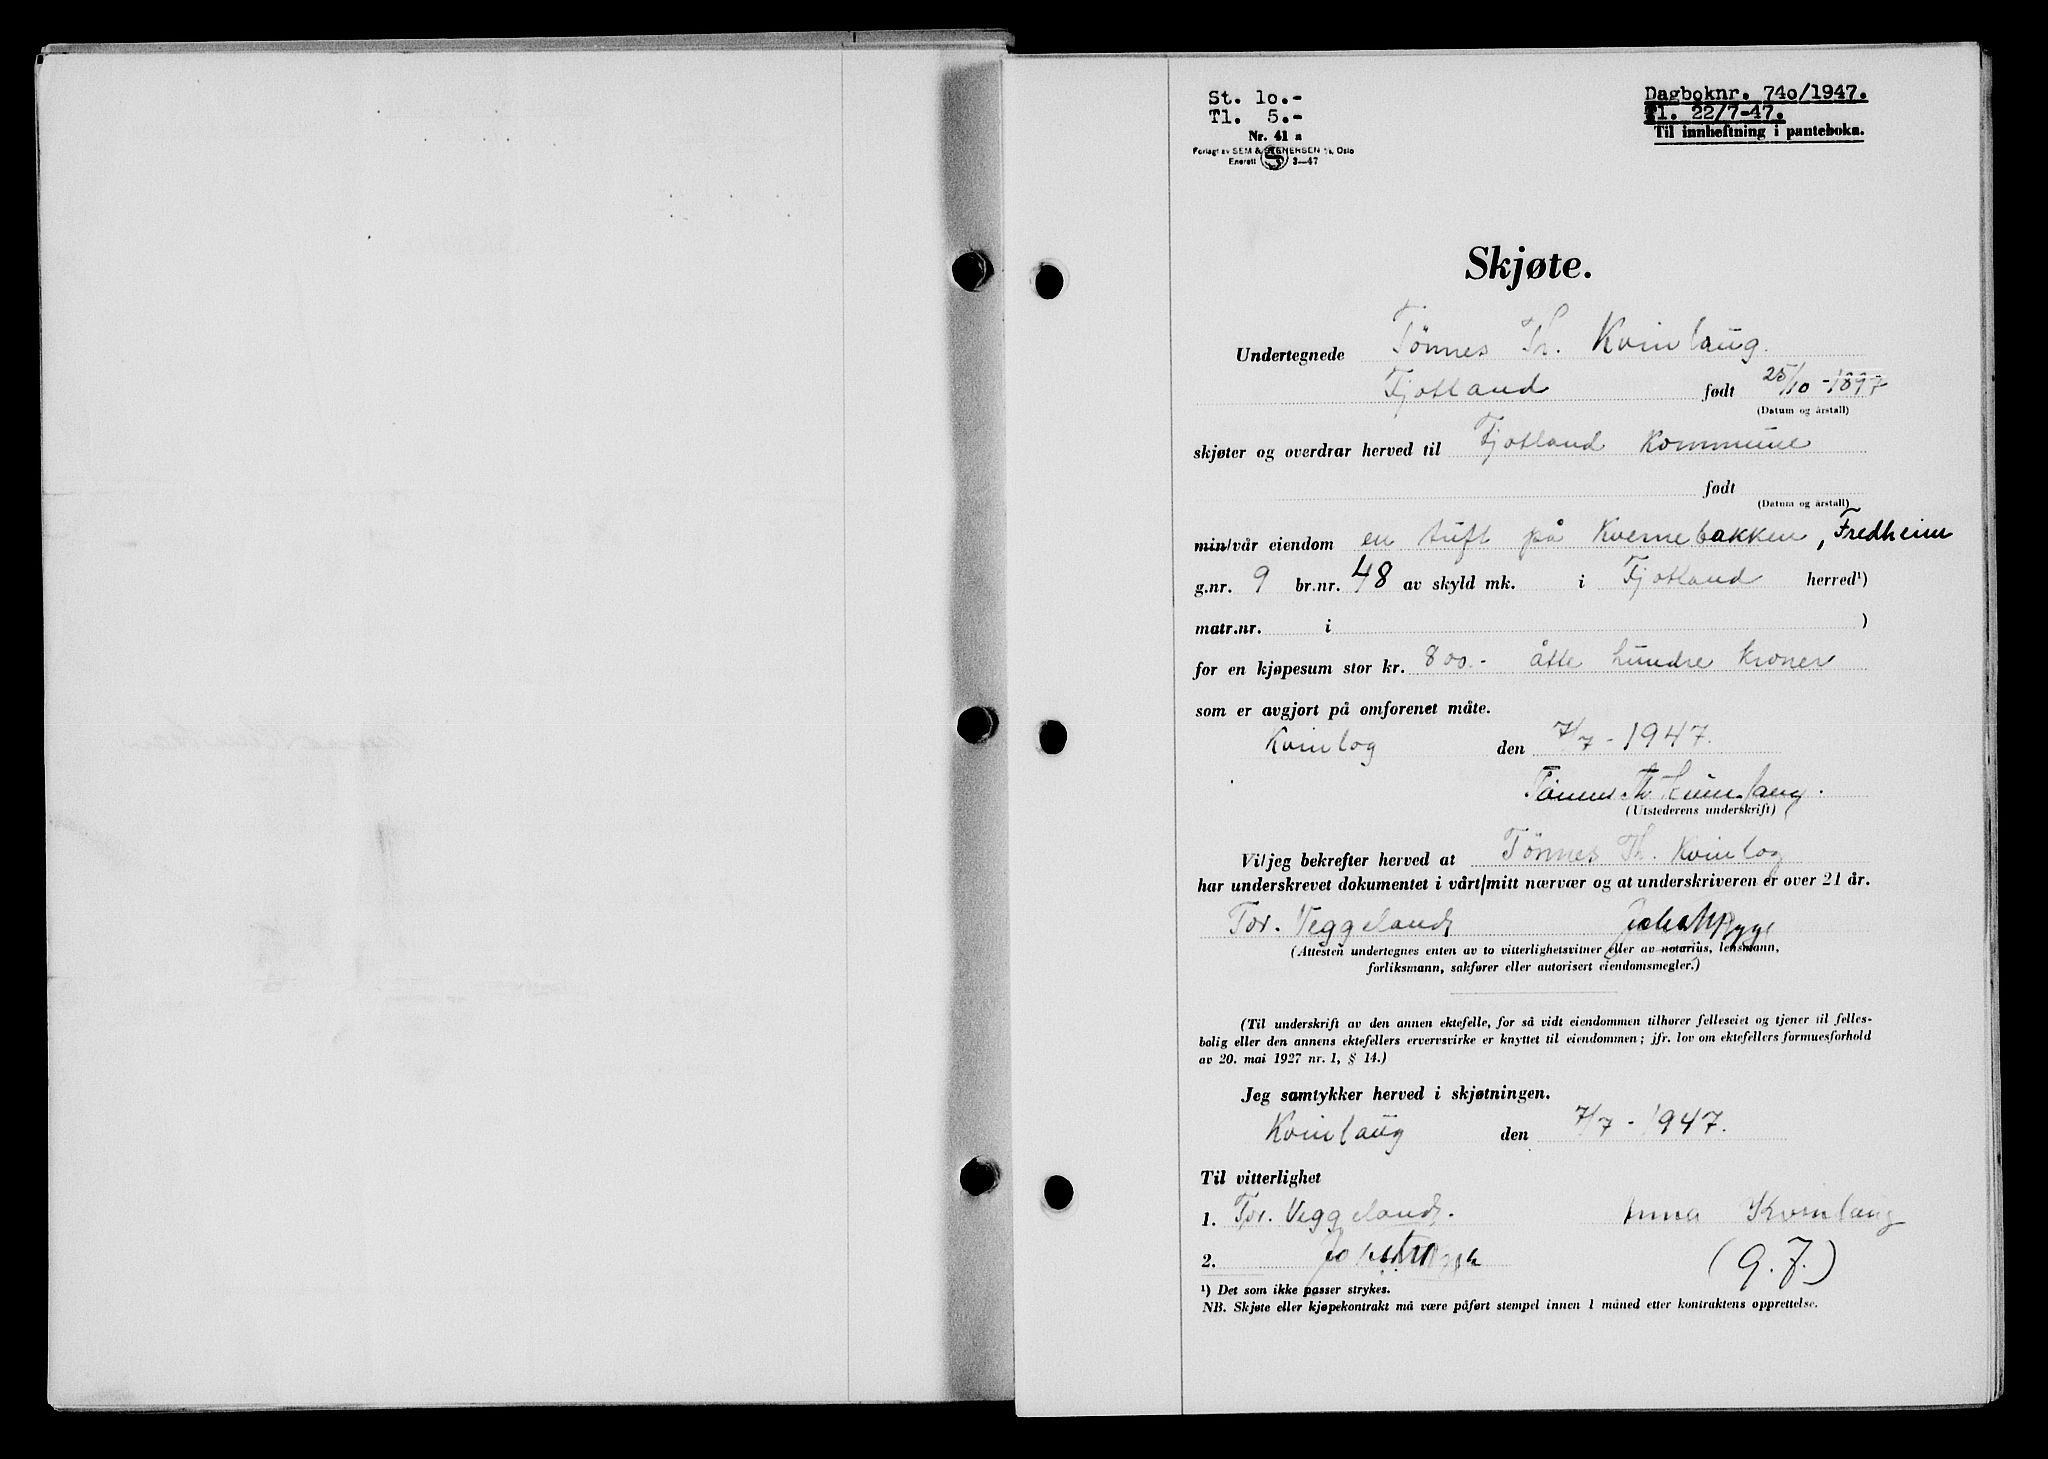 St. lo.-
Tl. 5.-
Nr. 41 a
Forlagt av SEM & STENERSEN A/S, Oslo
Enerett S 3—47
Dagboknr. 74o/1947.
Tl. 22/7-47.
Til innheftning i panteboka.
Skjøte.
Undertegnede Tönnes Th. Kvinlaug.
Fjotland født 25/10-1897
(Datum og årstall)
skjøter og overdrar herved til Fjotland Kommune
født
(Datum og årstall)
min/vår eiendom en tuft på Kvernebakken, Fredheim
g.nr. 9 br.nr. 48 av skyld mk. i Fjotland herred¹)
matr.nr. i )
for en kjøpesum stor kr. 800.- åtte hundre kroner
som er avgjort på omforenet måte.
Kvinlog den 7/7-1947.
Tönnes Th Kvinlaug.
(Utstederens underskrift)
Vi/jeg bekrefter herved at Tönnes Th. Kvinlog
har underskrevet dokumentet i vårt/mitt nærvær og at underskriveren er over 21 år.
Tor. Veggeland
(Attesten undertegnes enten av to vitterlighetsvitner eller av notarius, lensmann,
forliksmann, sakfører eller autorisert eiendomsmegler.)
(Til underskrift av den annen ektefelle, for så vidt eiendommen tilhører felleseiet og tjener til felles-
bolig eller den annens ektefellers ervervsvirke er knyttet til eiendommen; jfr. lov om ektefellers formuesforhold
av 20. mai 1927 nr. 1, § 14.)
Jeg samtykker herved i skjøtningen.
Kvinlaug den 7/7-1947.
Til vitterlighet
1. Tor. Veggeland. Anna Kvinlaug
2. (g. F.)
¹) Det som ikke passer strykes.
NB. Skjøte eller kjøpekontrakt må være påført stempel innen 1 måned etter kontraktens opprettelse.